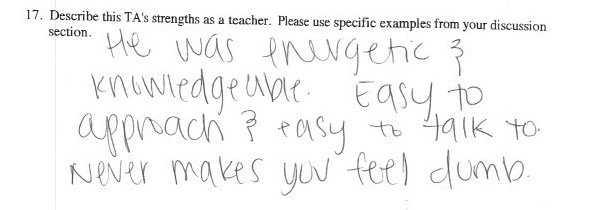 17. Describe this TA's strengths as a teacher. Please use specific examples from your discussion
section.
He was energetic &
knowledgeable. Easy to
approach & easy to talk to.
Never makes you feel dumb.